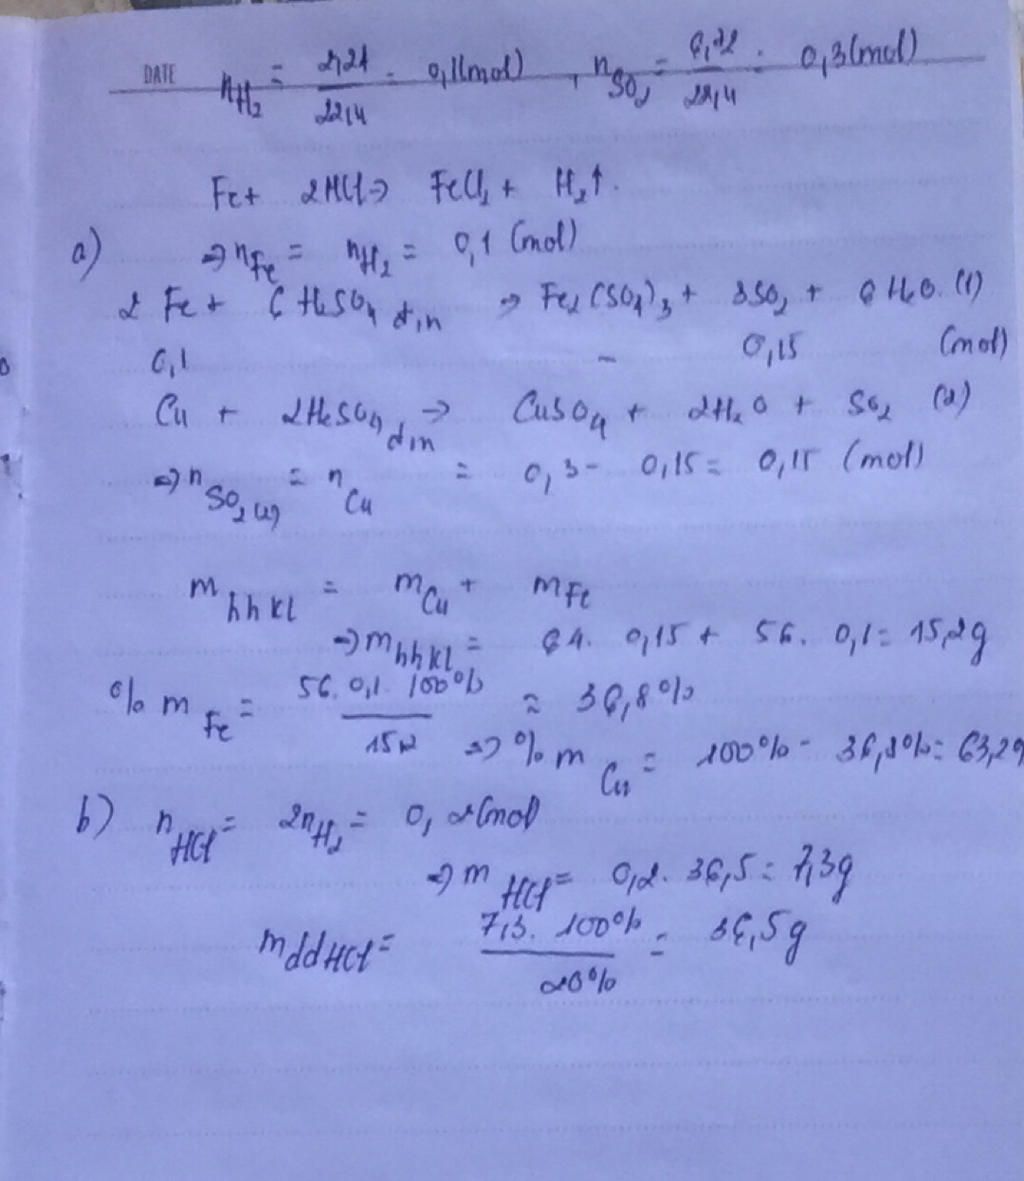 DATE nH₂ = 2,24/22,4 = 0,1(mol) , nSO₂ = 6,72/22,4 = 0,3(mol)
Fe + 2HCl → FeCl₂ + H₂↑.
a) ⇒ nFe = nH₂ = 0,1 (mol)
2 Fe + 6 H₂SO₄ đ,n → Fe₂(SO₄)₃ + 3SO₂ + 6 H₂O. (1)
0,1 - 0,15 (mol)
Cu + 2H₂SO₄ đ,n → CuSO₄ + 2H₂O + SO₂ (2)
⇒ nSO₂(2) = nCu = 0,3 - 0,15 = 0,15 (mol)
m hh kl = mCu + mFe
⇒ m hh kl = 64. 0,15 + 56. 0,1 = 15,2g
% mFe = 56. 0,1. 100%/15,2 ≈ 36,8%
⇒ % mCu = 100% - 36,8% = 63,2%
b) nHCl = 2nH₂ = 0,2(mol)
⇒ mHCl = 0,2. 36,5 = 7,3g
mddHCl = 7,3. 100%/20% = 36,5g